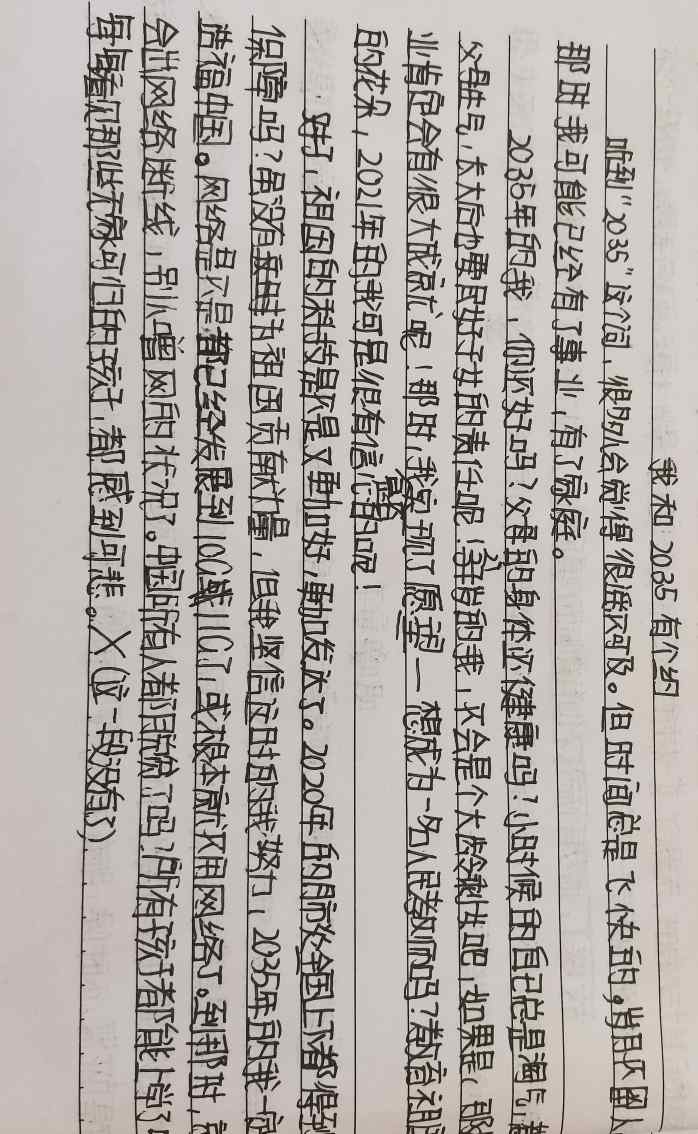 我和2035有个约
听到“2035”这个词，很多人会觉得很遥不可及。但时间总是飞快的，岁月不留人
那时我可能已经有了事业，有了家庭。
2035年的我，你还好吗？父母的身体还健康吗？小时候的自己总是淘气，
父母生气，长大后也要尽好子女的责任呢！ 的我，不会是个大龄剩女吧，如果是，那
业肯定会有很大成就呢！那时，我实现了愿望一想成为一名人民教师吗？教育祖国
的花朵，2021年的我可是很有信心的呢！
对了，祖国的科技是不是又更加好，更加发达了。2020年的脱贫全国上下都得到
保障吗？虽没有亲自为祖国贡献力量，但我坚信这时的我努力，2035年的我一定
造福中国。网络是不是都已经发展到10G或11G了，或根本就不用网络了。到那时，
会出网络断线，别人蹭网的状况了。中国所有人都脱贫了吗？所有孩子都能上学了
每每看见那些无家可归的孩子，都感到可悲。X（这一段没有了）